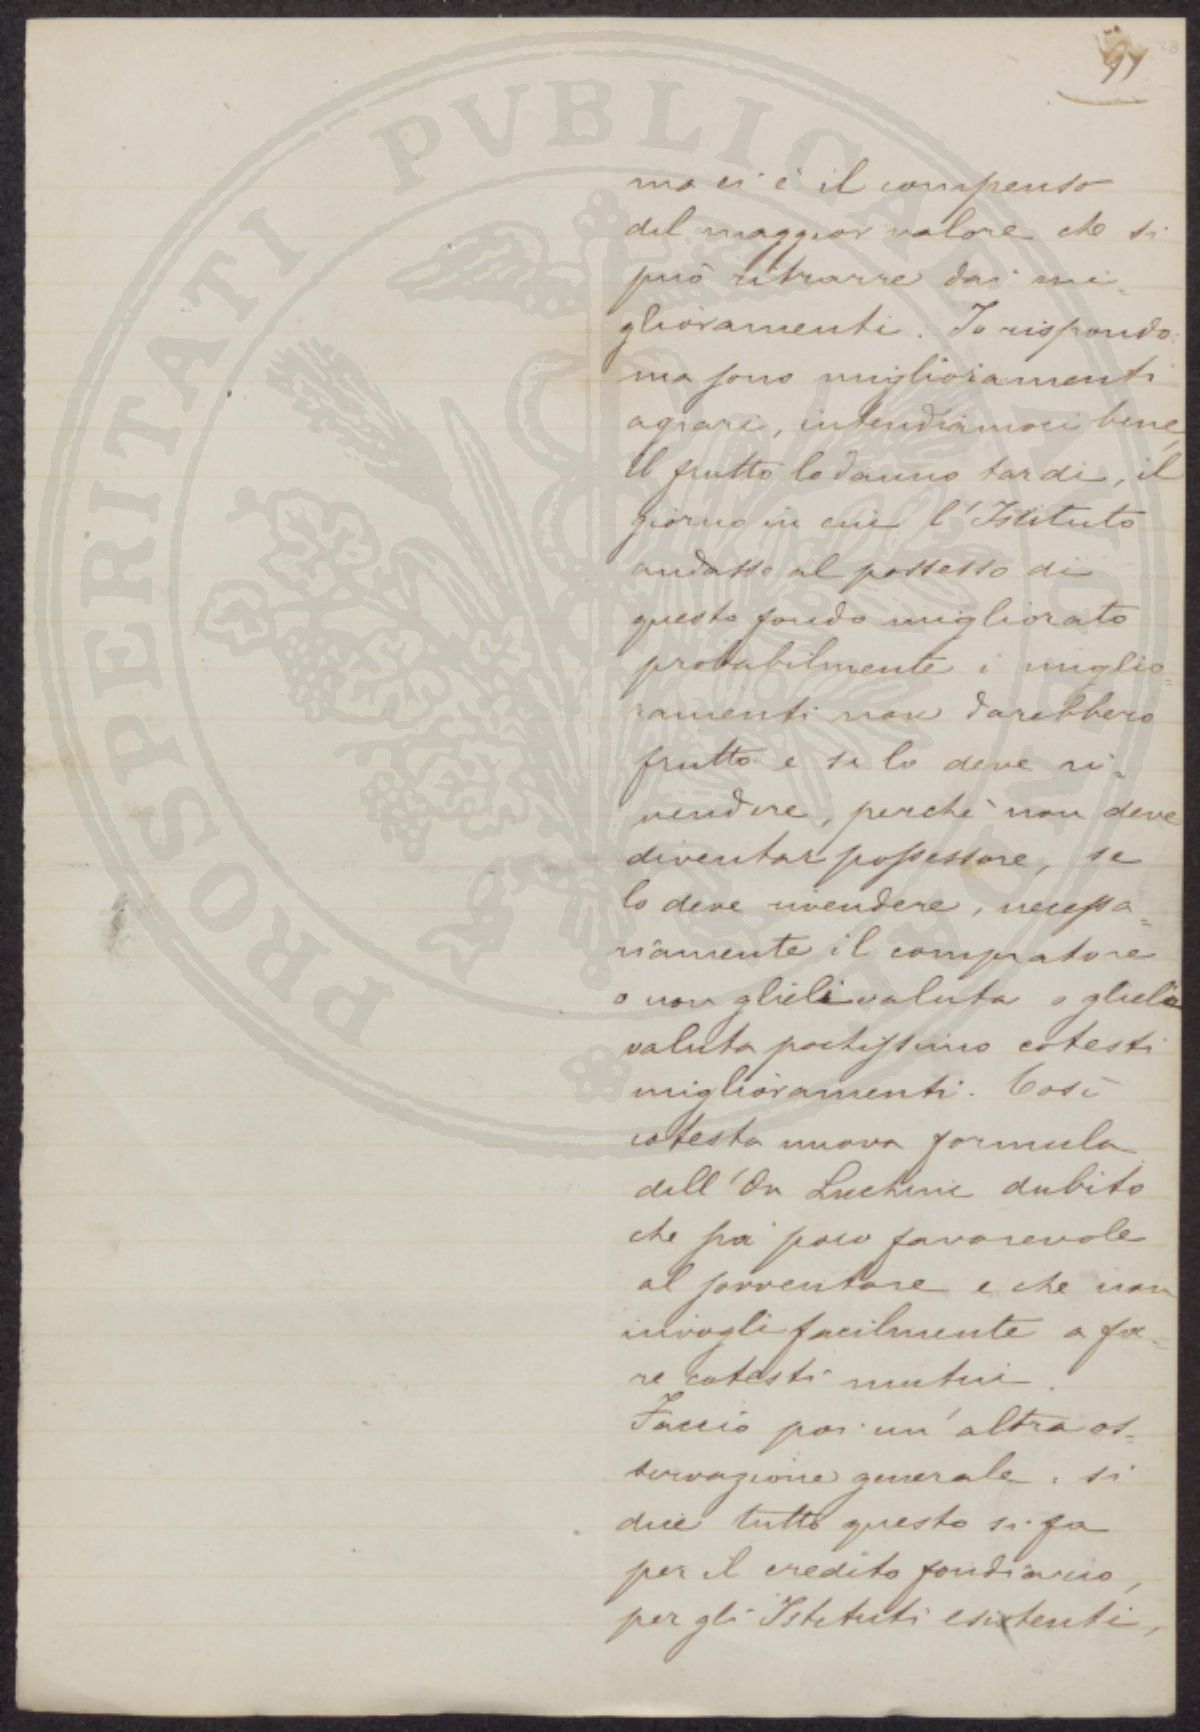 97
ma ci è il compenso
del maggior valore che si
può ritrarre dai mi-
glioramenti. Io rispondo:
ma sono miglioramenti
agrari, intendiamoci bene,
il frutto lo danno tardi, il
giorno in cui l'Istituto
andasse al possesso di
questo fondo migliorato
probabilmente i miglio-
ramenti non darebbero
frutto e se lo deve ri-
vendere, perchè non deve
diventar possessore, se
lo deve rivendere, necessa-
riamente il compratore
o non glieli valuta o glieli
valuta pochissimo cotesti
miglioramenti. Così
cotesta nuova formula
dell'On Luchini dubito
che sia poco favorevole
al sovventore e che non
invogli facilmente a fa-
re cotesti mutui.
Faccio poi un'altra os-
servazione generale: si
dice tutto questo si fa
per il credito fondiario,
per gli Istituti esistenti,
PROSPERITATI PVBLICAE